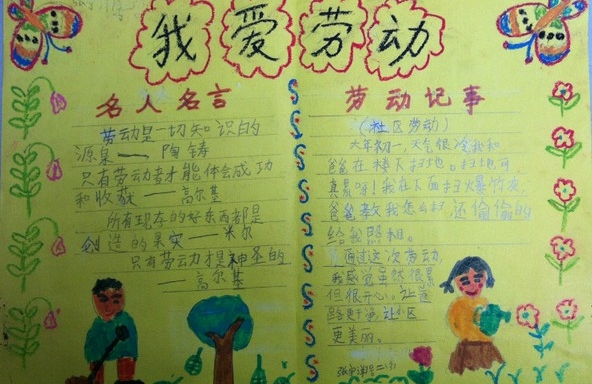 我爱劳动
名人名言
劳动是一切知识的
源泉——陶铸
只有劳动者才能体会成功
和收获——高尔基
所有现存的好东西都是
创造的果实——米尔
只有劳动才是神圣的
——高尔基
劳动记事
（社区劳动）
大年初一，天气很冷我和
爸在楼下扫地。扫地可
真累呀！我在下面扫爆竹皮，
爸爸教我怎么扫，还偷偷的
给我照相。
通过这次劳动，
我感觉虽然很累
但很开心。让道
路更宽让区
更美丽。